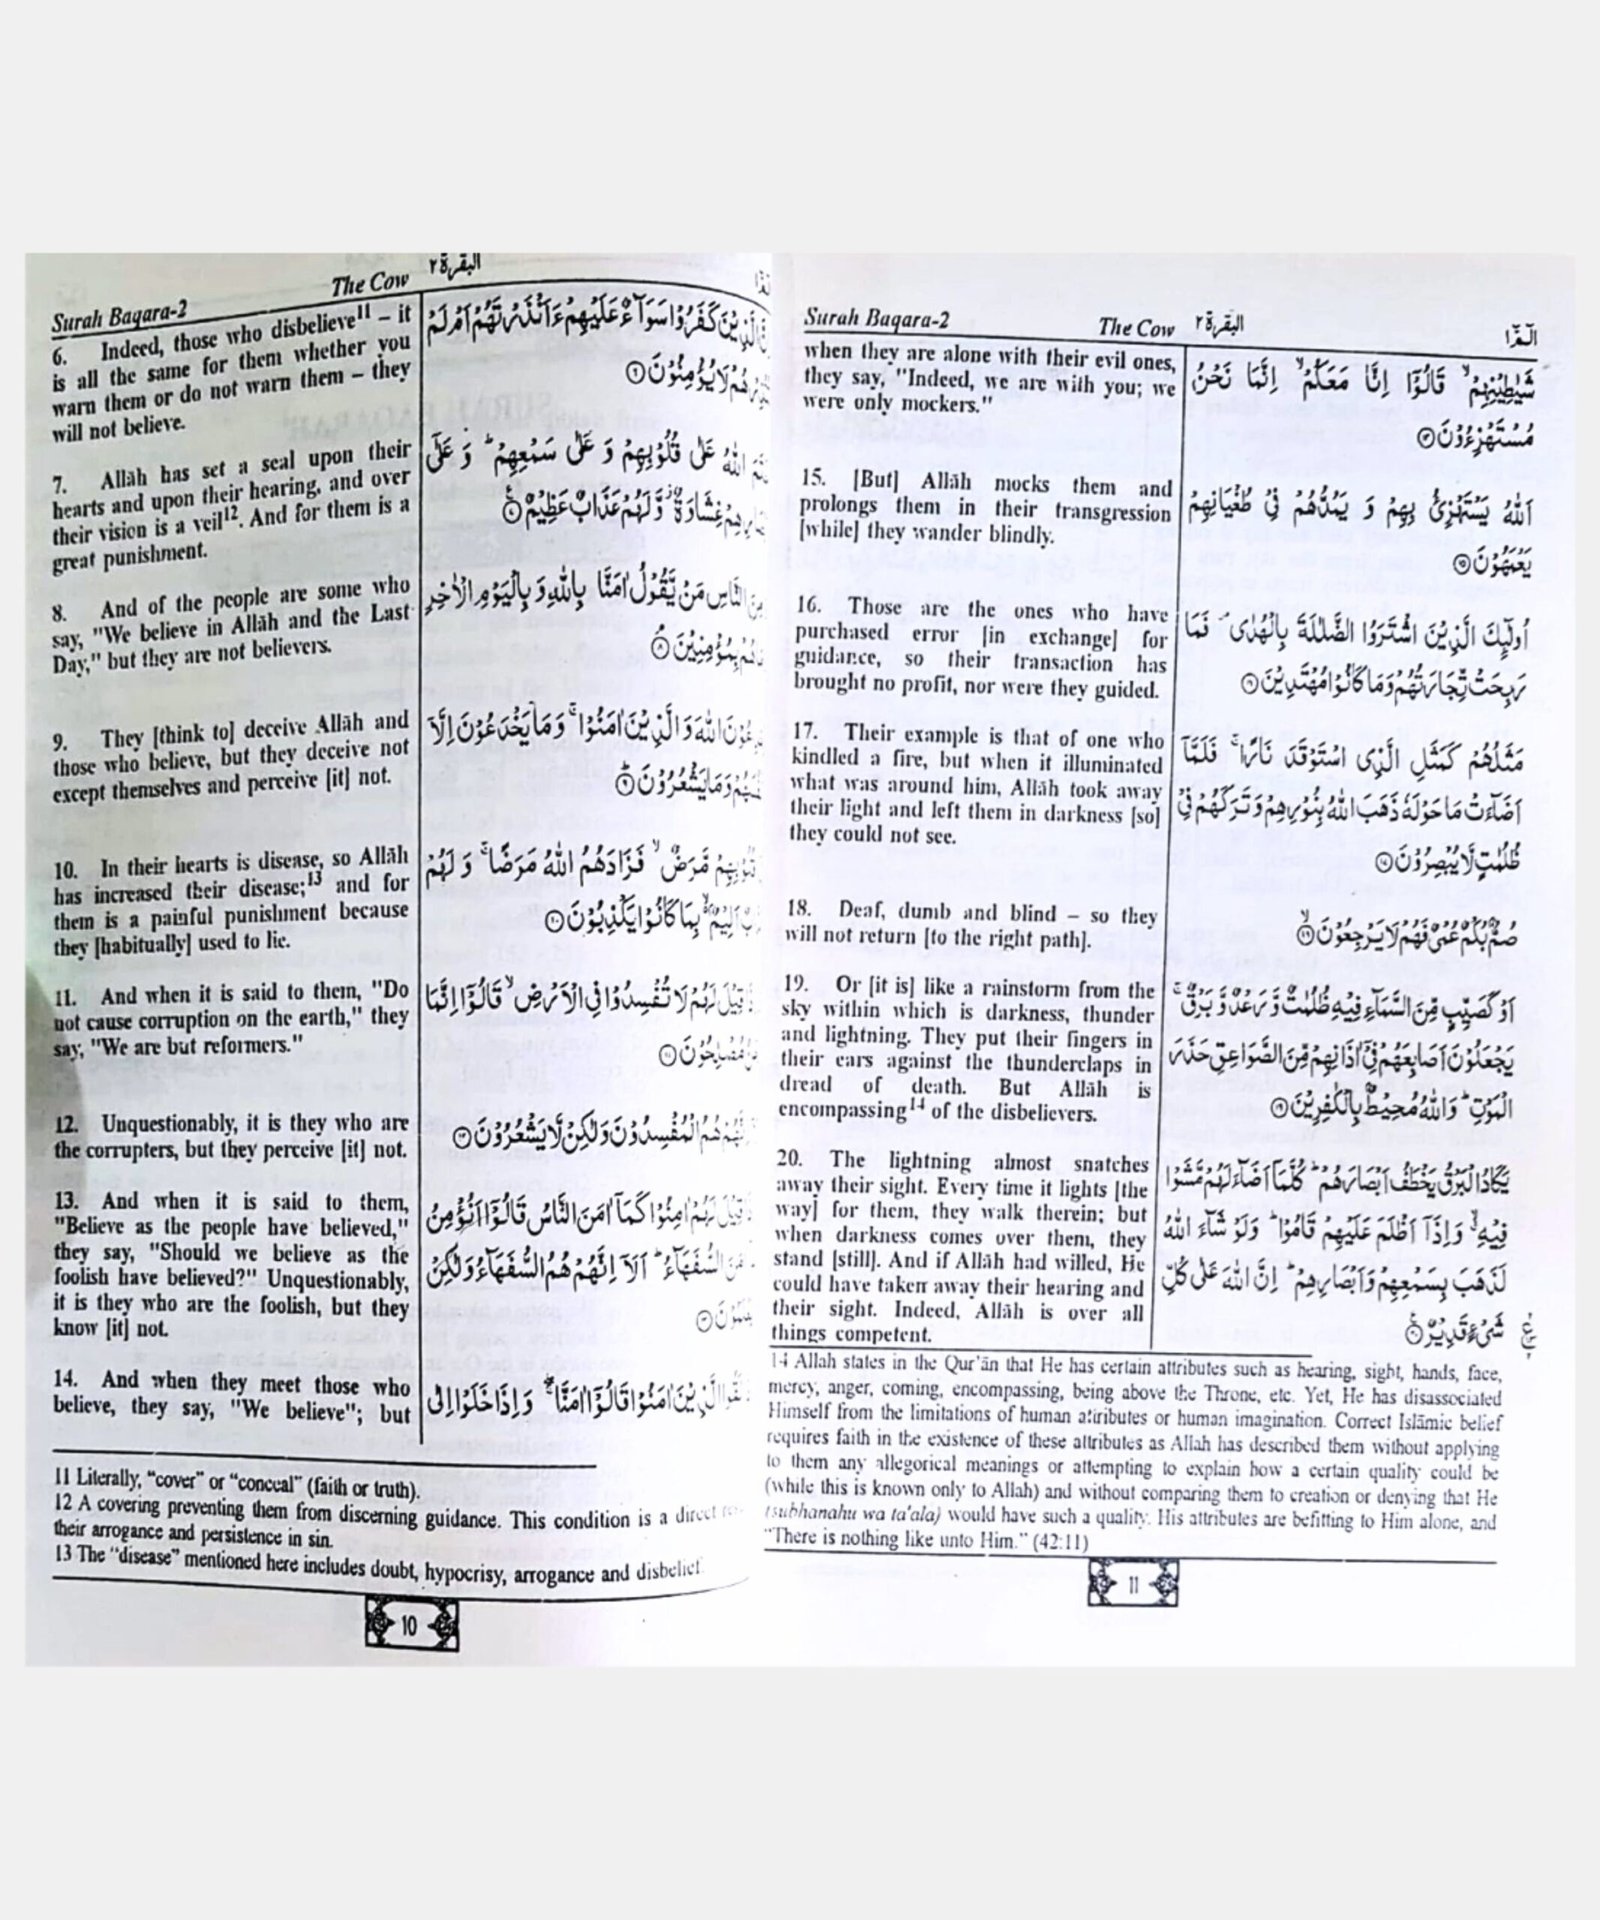 Surah Baqara-2 The Cow البقرة ٢
6. Indeed, those who disbelieve11 – it
is all the same for them whether you
warn them or do not warn them – they
will not believe.
7. Allāh has set a seal upon their
hearts and upon their hearing, and over
their vision is a veil12. And for them is a
great punishment.
8. And of the people are some who
say, "We believe in Allāh and the Last
Day," but they are not believers.
9. They [think to] deceive Allāh and
those who believe, but they deceive not
except themselves and perceive [it] not.
10. In their hearts is disease, so Allāh
has increased their disease;13 and for
them is a painful punishment because
they [habitually] used to lie.
11. And when it is said to them, "Do
not cause corruption on the earth," they
say, "We are but reformers."
12. Unquestionably, it is they who are
the corrupters, but they perceive [it] not.
13. And when it is said to them,
"Believe as the people have believed,"
they say, "Should we believe as the
foolish have believed?" Unquestionably,
it is they who are the foolish, but they
know [it] not.
14. And when they meet those who
believe, they say, "We believe"; but
كَفَرُوْا سَوَآءٌ عَلَيْهِمْ ءَاَنْذَرْتَهُمْ اَمْ لَمْ
لَا يُؤْمِنُوْنَ ۝٦
اللّٰهُ عَلٰى قُلُوْبِهِمْ وَ عَلٰى سَمْعِهِمْ ؕ وَ عَلٰٓى
غِشَاوَةٌ ؗ وَّ لَهُمْ عَذَابٌ عَظِيْمٌ ۝٧
النَّاسِ مَنْ يَّقُوْلُ اٰمَنَّا بِاللّٰهِ وَ بِالْيَوْمِ الْاٰخِرِ
بِمُؤْمِنِيْنَ ۝٨
اللّٰهَ وَ الَّذِيْنَ اٰمَنُوْا ۚ وَ مَا يَخْدَعُوْنَ اِلَّاۤ
وَ مَا يَشْعُرُوْنَ ۝٩
مَّرَضٌ ۙ فَزَادَهُمُ اللّٰهُ مَرَضًا ۚ وَ لَهُمْ
اَلِيْمٌۢ ۙ بِمَا كَانُوْا يَكْذِبُوْنَ ۝١٠
قِيْلَ لَهُمْ لَا تُفْسِدُوْا فِى الْاَرْضِ ۙ قَالُوْۤا اِنَّمَا
مُصْلِحُوْنَ ۝١١
هُمُ الْمُفْسِدُوْنَ وَ لٰكِنْ لَّا يَشْعُرُوْنَ ۝١٢
قِيْلَ لَهُمْ اٰمِنُوْا كَمَاۤ اٰمَنَ النَّاسُ قَالُوْۤا اَنُؤْمِنُ
السُّفَهَآءُ ؕ اَلَاۤ اِنَّهُمْ هُمُ السُّفَهَآءُ وَ لٰكِنْ
الَّذِيْنَ اٰمَنُوْا قَالُوْۤا اٰمَنَّا ۖۚ وَ اِذَا خَلَوْا اِلٰى
11 Literally, “cover” or “conceal” (faith or truth).
12 A covering preventing them from discerning guidance. This condition is a direct
their arrogance and persistence in sin.
13 The “disease” mentioned here includes doubt, hypocrisy, arrogance and disbelief.
10
Surah Baqara-2 The Cow البقرة ٢ الٓمّٓ ١
when they are alone with their evil ones,
they say, "Indeed, we are with you; we
were only mockers."
15. [But] Allāh mocks them and
prolongs them in their transgression
[while] they wander blindly.
16. Those are the ones who have
purchased error [in exchange] for
guidance, so their transaction has
brought no profit, nor were they guided.
17. Their example is that of one who
kindled a fire, but when it illuminated
what was around him, Allāh took away
their light and left them in darkness [so]
they could not see.
18. Deaf, dumb and blind – so they
will not return [to the right path].
19. Or [it is] like a rainstorm from the
sky within which is darkness, thunder
and lightning. They put their fingers in
their ears against the thunderclaps in
dread of death. But Allāh is
encompassing14 of the disbelievers.
20. The lightning almost snatches
away their sight. Every time it lights [the
way] for them, they walk therein; but
when darkness comes over them, they
stand [still]. And if Allāh had willed, He
could have taken away their hearing and
their sight. Indeed, Allāh is over all
things competent.
شَيٰطِيْنِهِمْ ۙ قَالُوْۤا اِنَّا مَعَكُمْ ۙ اِنَّمَا نَحْنُ
مُسْتَهْزِءُوْنَ ۝١٤
اَللّٰهُ يَسْتَهْزِئُ بِهِمْ وَ يَمُدُّهُمْ فِىْ طُغْيَانِهِمْ
يَعْمَهُوْنَ ۝١٥
اُولٰٓئِكَ الَّذِيْنَ اشْتَرَوُا الضَّلٰلَةَ بِالْهُدٰى ۪ فَمَا
رَبِحَتْ تِّجَارَتُهُمْ وَ مَا كَانُوْا مُهْتَدِيْنَ ۝١٦
مَثَلُهُمْ كَمَثَلِ الَّذِى اسْتَوْقَدَ نَارًا ۚ فَلَمَّاۤ
اَضَآءَتْ مَا حَوْلَهٗ ذَهَبَ اللّٰهُ بِنُوْرِهِمْ وَ تَرَكَهُمْ فِىْ
ظُلُمٰتٍ لَّا يُبْصِرُوْنَ ۝١٧
صُمٌّۢ بُكْمٌ عُمْىٌ فَهُمْ لَا يَرْجِعُوْنَ ۙ۝١٨
اَوْ كَصَيِّبٍ مِّنَ السَّمَآءِ فِيْهِ ظُلُمٰتٌ وَّ رَعْدٌ وَّ بَرْقٌ ۚ
يَجْعَلُوْنَ اَصَابِعَهُمْ فِىْۤ اٰذَانِهِمْ مِّنَ الصَّوَاعِقِ حَذَرَ
الْمَوْتِ ؕ وَ اللّٰهُ مُحِيْطٌۢ بِالْكٰفِرِيْنَ ۝١٩
يَكَادُ الْبَرْقُ يَخْطَفُ اَبْصَارَهُمْ ؕ كُلَّمَاۤ اَضَآءَ لَهُمْ مَّشَوْا
فِيْهِ ۙ وَ اِذَاۤ اَظْلَمَ عَلَيْهِمْ قَامُوْا ؕ وَ لَوْ شَآءَ اللّٰهُ
لَذَهَبَ بِسَمْعِهِمْ وَ اَبْصَارِهِمْ ؕ اِنَّ اللّٰهَ عَلٰى كُلِّ
شَىْءٍ قَدِيْرٌ ۝٢٠
14 Allah states in the Qur’ān that He has certain attributes such as hearing, sight, hands, face,
mercy, anger, coming, encompassing, being above the Throne, etc. Yet, He has disassociated
Himself from the limitations of human attributes or human imagination. Correct Islāmic belief
requires faith in the existence of these attributes as Allah has described them without applying
to them any allegorical meanings or attempting to explain how a certain quality could be
(while this is known only to Allah) and without comparing them to creation or denying that He
(subhanahu wa ta'ala) would have such a quality. His attributes are befitting to Him alone, and
“There is nothing like unto Him.” (42:11)
11